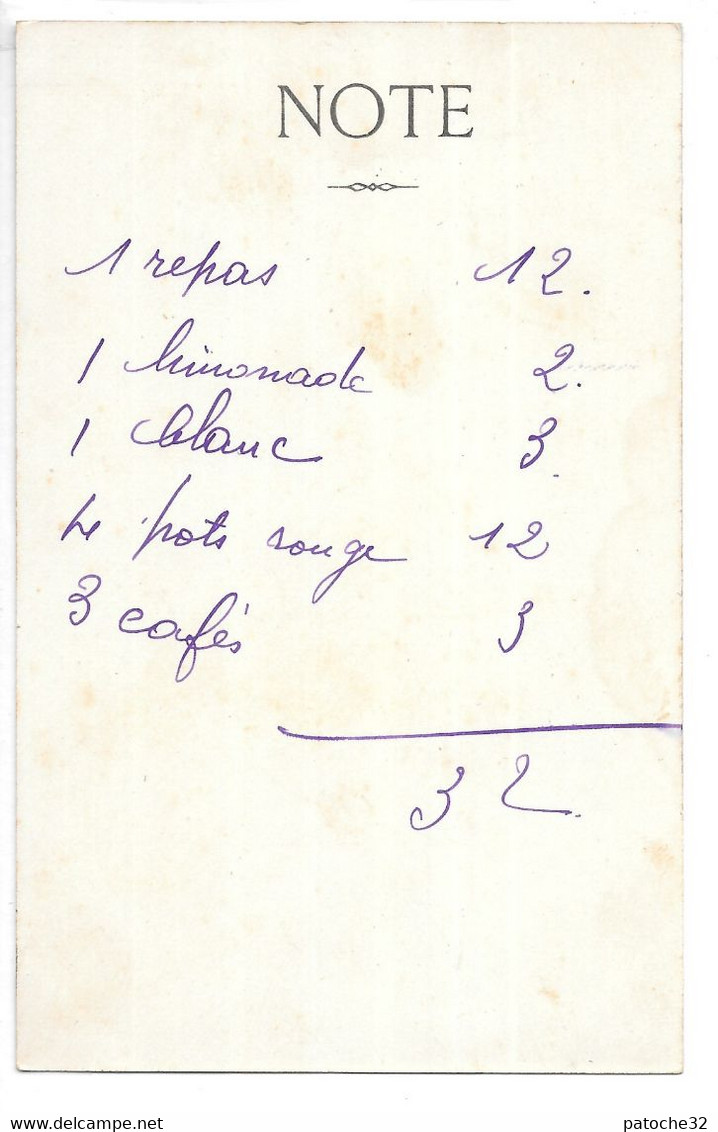 NOTE
1 repas 12.
1 limonade 2.
1 blanc 3.
4 pots rouge 12
3 cafés 3
32.
patoche32